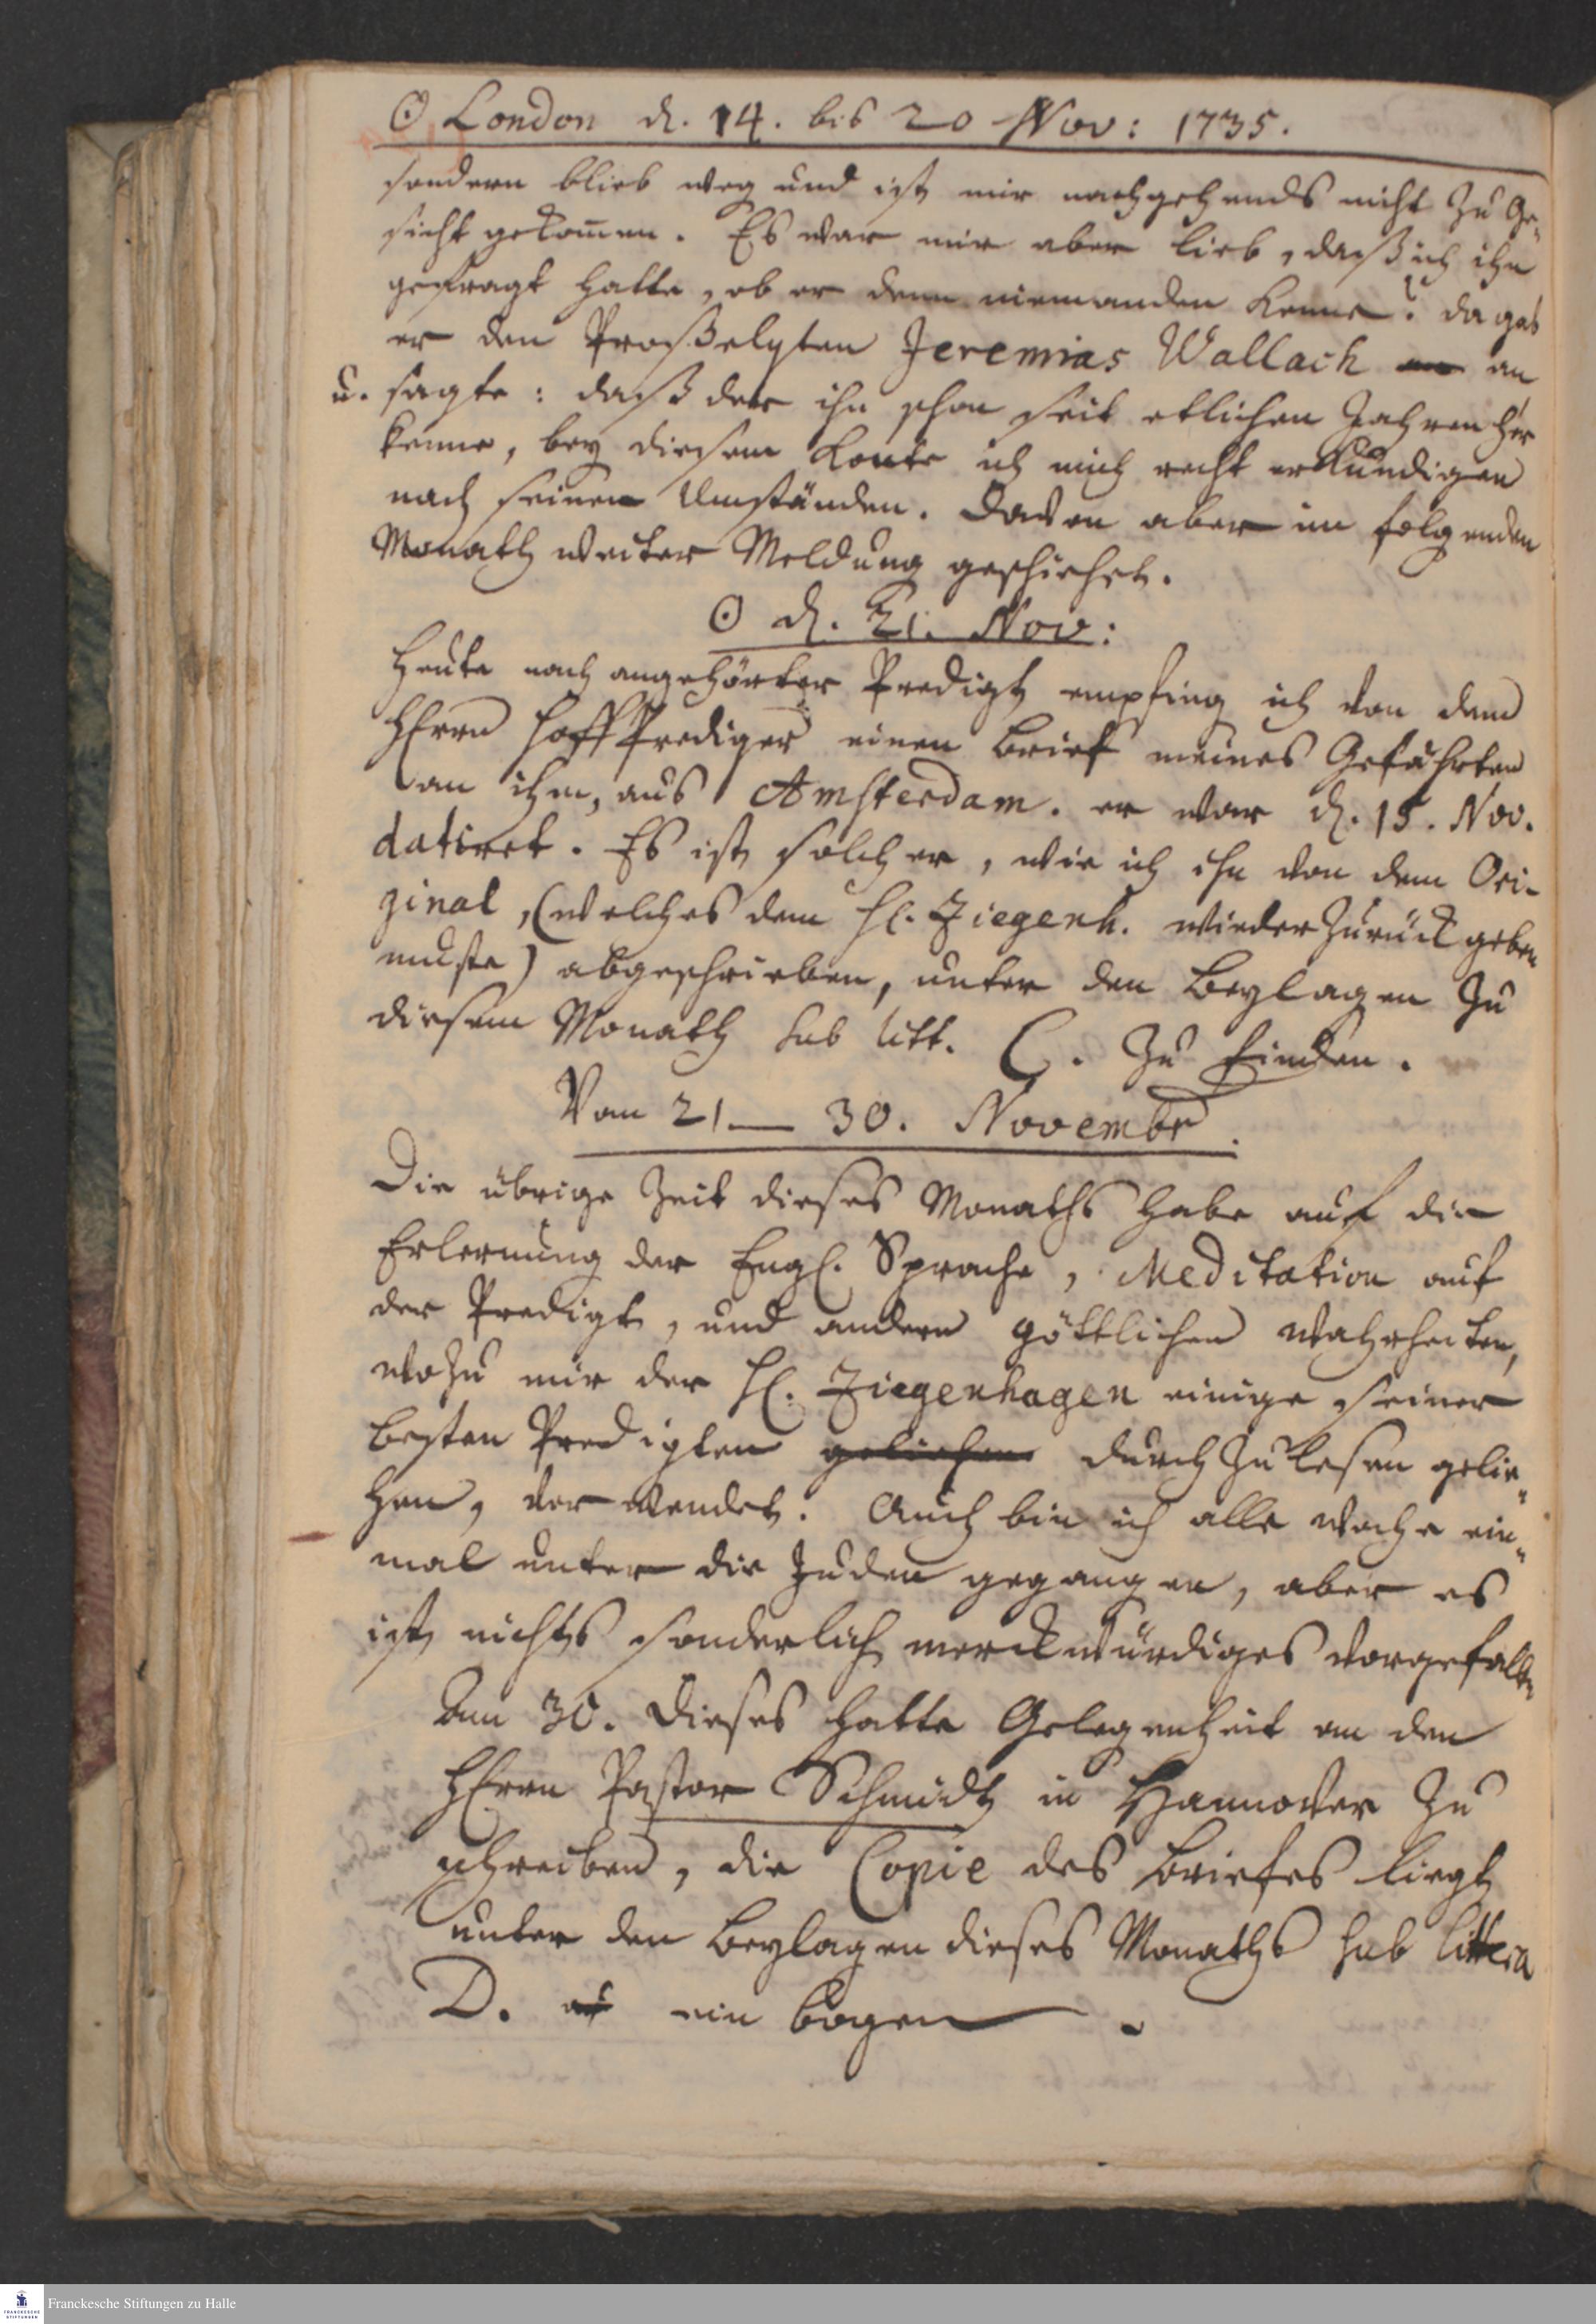 ☉ London d. 14. bis 20 Nov: 1735.
sondern blieb weg und ist mir nachgehends nicht zu Ge-
sicht gekom̄en. Es war mir aber lieb, daß ich ihn
gefragt hatte, ob er denn niemanden kenne? da gab
er den Proßelyten Jeremias Wallach an
u. sagte: daß der ihn schon seit etlichen Jahren her
kenne, bey diesem konte ich mich recht erkundigen
nach seinen Umständen. Davon aber im folgenden
Monath weiter Meldung geschiehet.
☉ d. 21. Nov:
Heute nach angehörter Predigt empfing ich von dem
HErrn HoffPrediger einen Brief meines Gefährten
an ihm, aus Amsterdam. er war d. 15. Nov.
datiret. Es ist solcher, wie ich ihn von dem Ori-
ginal, (welches dem H. Ziegenh. wieder zurück geben
muste) abgeschrieben, unter den Beylagen zu
diesem Monath sub litt. C. zu finden.
Vom 21 — 30. Novembr.
Die übrige Zeit dieses Monaths habe auf die
Erlernung der Engl. Sprache, Meditation auf
der Predigt, und andern göttlichen Wahrheiten,
wozu mir der H. Ziegenhagen einige seiner
besten Predigten geliehen durch zu lesen gelie-
hen, verwendet. Auch bin ich alle Woche ein-
mal unter die Juden gegangen, aber es
ist nichts sonderlich merckwürdiges vorgefallen
Den 30. dieses hatte Gelegenheit an den
HErrn Pastor Schmidt in Hannover zu
schreiben, die Copie des Briefes liegt
unter den Beylagen dieses Monaths sub littera
D. ein bogen.
Franckesche Stiftungen zu Halle
FRANCKESCHE
STIFTUNGEN